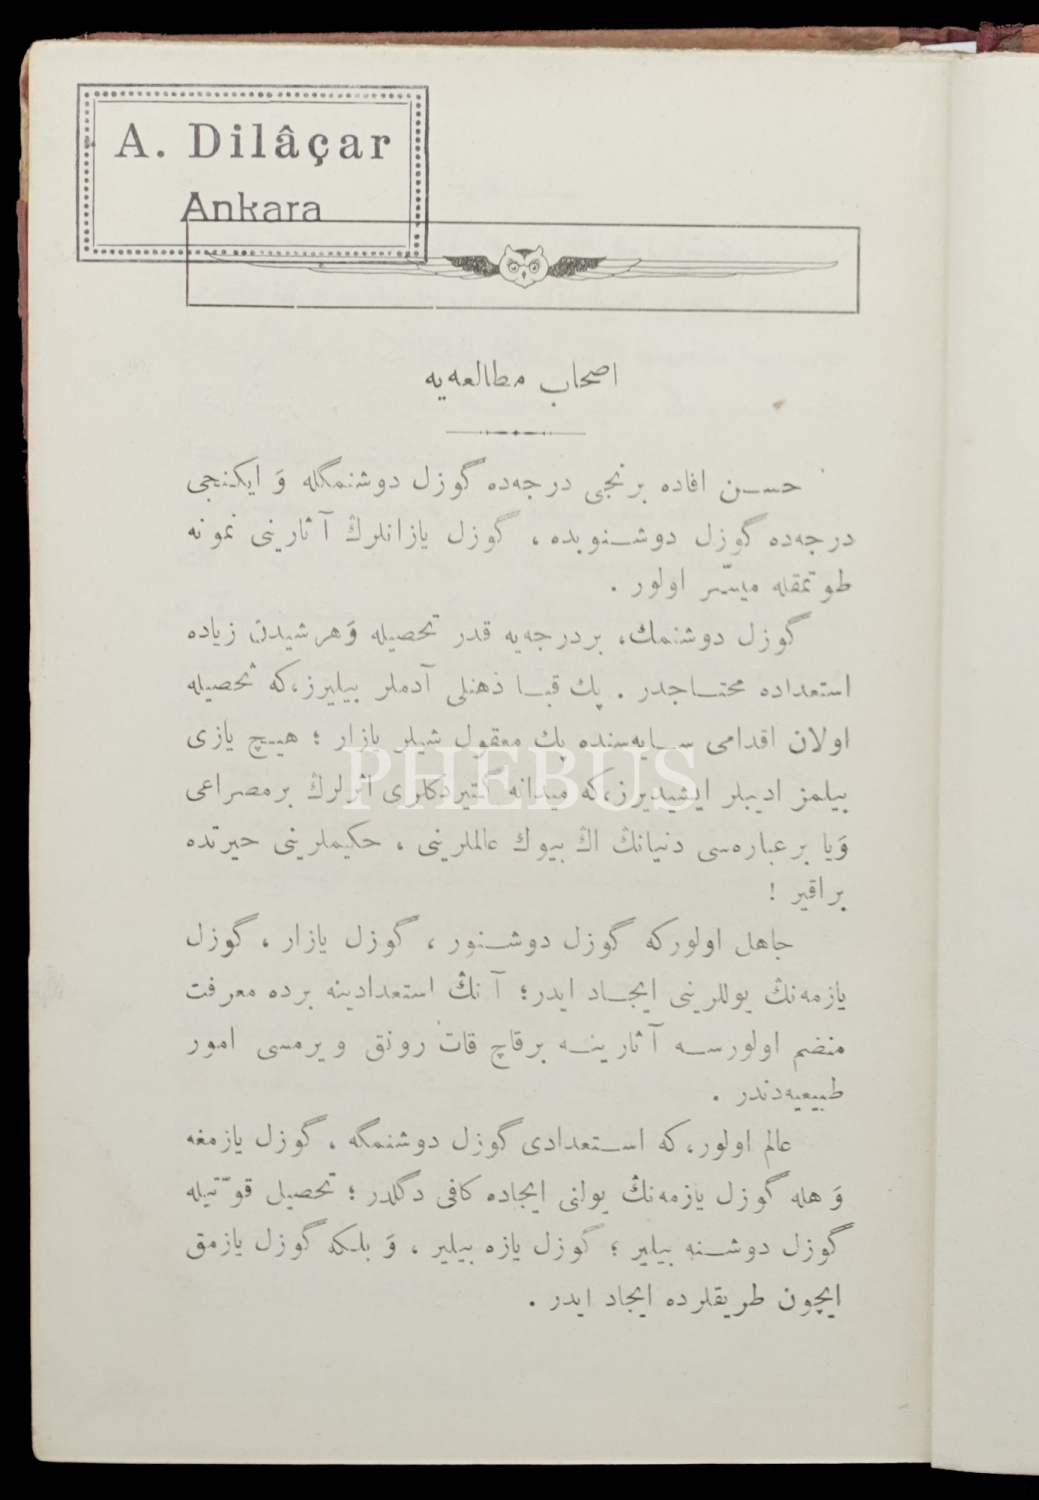 A. Dilâçar
Ankara
اصحاب مطالعه‌یه
حسن افاده برنجی درجه‌ده گوزل دوشنمگله وَ ایکنجی
درجه‌ده گوزل دوشنوبده ، گوزل یازانلرڭ آثارینی نمونه
طوتمقله میسّر اولور .
گوزل دوشنمك، بردرجه‌یه قدر تحصیله وَهرشیدن زیاده
استعداده محتاجدر . پك قبا ذهنلی آدملر بیلیرز،که تحصیله
اولان اقدامی سایه‌سنده پك معقول شیلر یازار ؛ هیچ یازی
بیلمز ادیبلر ایشیدیرز،که میدانه گتیردکلری اثرلرڭ برمصراعی
وَیا برعباره‌سی دنیانڭ اڭ بیوك عالملرینی ، حکیملرینی حیرتده
براقیر !
جاهل اولورکه گوزل دوشنور ، گوزل یازار ، گوزل
یازمه‌نڭ یوللرینی ایجاد ایدر؛ آنڭ استعدادینه برده معرفت
منضم اولورسه آثارینه برقاچ قات رونق ویرمسی امور
طبیعیه‌دندر .
عالم اولور،که استعدادی گوزل دوشنمگه ، گوزل یازمغه
وَ هله گوزل یازمه‌نڭ یولنی ایجاده کافی دگلدر ؛ تحصیل قوّتیله
گوزل دوشنه بیلیر ؛ گوزل یازه بیلیر ، وَ بلکه گوزل یازمق
ایچون طریقلرده ایجاد ایدر .
PHEBUS